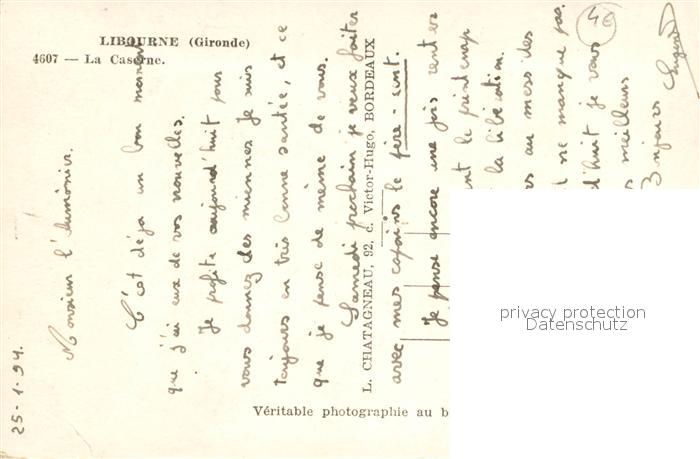 LIBOURNE (Gironde)
4607 — La Caserne.
4€
25-1-94.
Monsieur l'aumônier.
C'est déjà un bon moment
que j'ai eu de vos nouvelles.
Je profite aujourd'huit pour
vous donnez des miennes je suis
toujours en très bonne santée, et ce
que je pense de même de vous.
Samedi prochain je veux faiter
L. CHATAGNEAU, 92, c. Victor-Hugo, BORDEAUX
avec mes copains le père-cent.
Je pense encore une fois rentrer
nt le printemp
la libération.
s au mess des
ne manque pas.
d'huit je vous
s meilleurs
Bonjours
Véritable photographie au b
privacy protection
Datenschutz